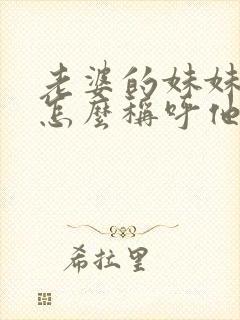 老婆的妹妹
怎麼稱呼他
希拉里